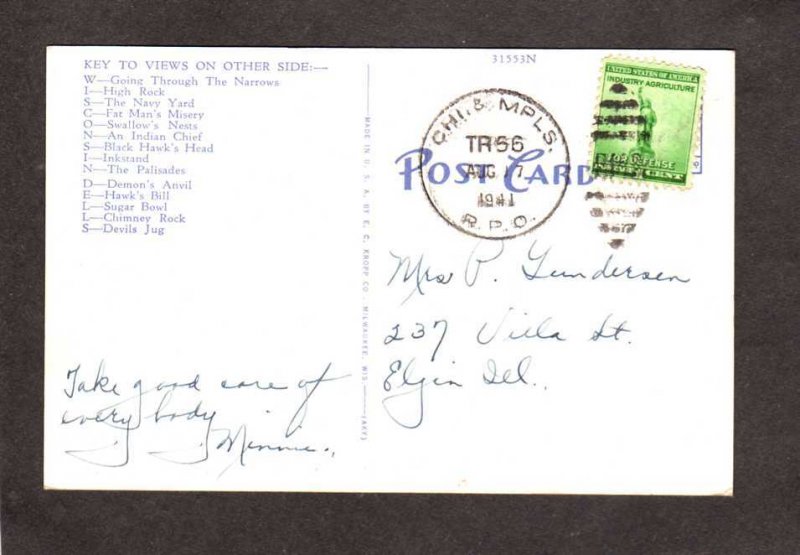 KEY TO VIEWS ON OTHER SIDE:—
W—Going Through The Narrows
I—High Rock
S—The Navy Yard
C—Fat Man's Misery
O—Swallow's Nests
N—An Indian Chief
S—Black Hawk's Head
I—Inkstand
N—The Palisades
D—Demon's Anvil
E—Hawk's Bill
L—Sugar Bowl
L—Chimney Rock
S—Devils Jug
Take good care of
every body.
Minnie.
MADE IN U. S. A. BY E. C. KROPP CO. MILWAUKEE, WIS.
31553N
POST CARD
CHI. & MPLS.
TR66
AUG 17
1941
R.P.O.
UNITED STATES OF AMERICA
INDUSTRY AGRICULTURE
FOR DEFENSE
CENT
Mrs P. Gundersen
237 Villa St.
Elgin Ill.